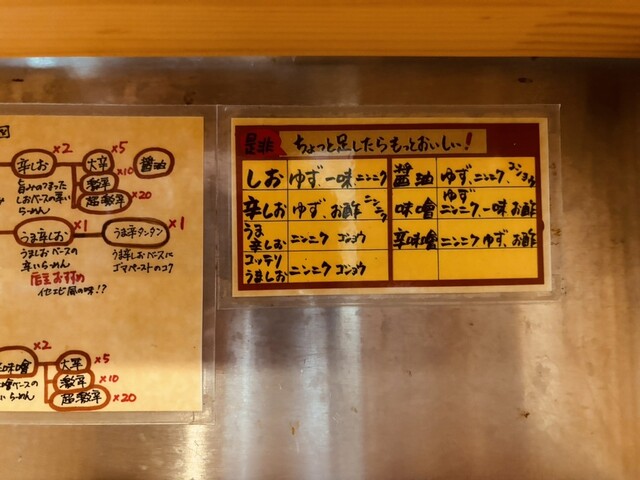 辛しお ×2 大辛 ×5 醤油
激辛 ×10
超激辛 ×20
旨みのつまった
しおベースの辛い
らーめん
うま辛しお ×1 うま辛タンタン ×1
うましおベースの
辛いらーめん
店主おすすめ
イセエビ風の味!?
うま辛しおベースに
ゴマペーストのコク
味噌 ×2 大辛 ×5
激辛 ×10
超激辛 ×20
噌ベースの
らーめん
是非 ちょっと足したらもっとおいしい!
しお ゆず、一味、ニンニク
辛しお ゆず、お酢 ニンニク
うま辛しお ニンニク コショウ
コッテリうましお ニンニク コショウ
醤油 ゆず、ニンニク、コショウ
味噌 ゆず ニンニク、一味、お酢
辛味噌 ニンニク ゆず、お酢